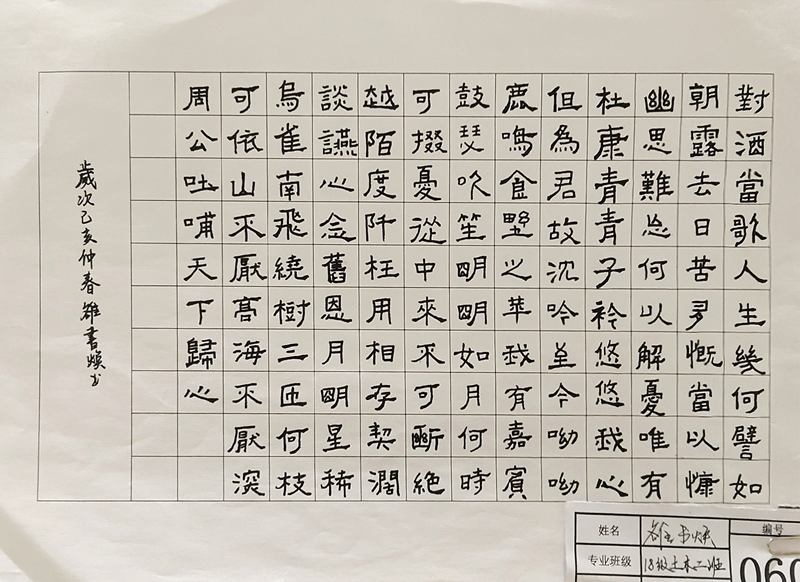 對酒當歌人生幾何譬如
朝露去日苦多慨當以慷
幽思難忘何以解憂唯有
杜康青青子衿悠悠我心
但為君故沈吟至今呦呦
鹿鳴食野之苹我有嘉賓
鼓瑟吹笙明明如月何時
可掇憂從中來不可斷絕
越陌度阡枉用相存契濶
談讌心念舊恩月明星稀
烏雀南飛繞樹三匝何枝
可依山不厭高海不厭深
周公吐哺天下歸心
歲次己亥仲春雒書焕书
姓名 雒书焕 编号
专业班级 18级土木二班 060